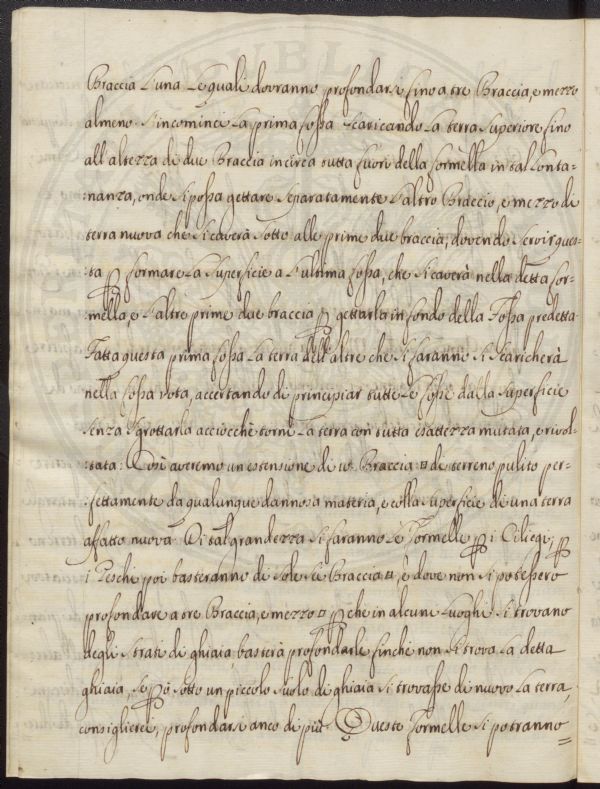 Braccia l'una Le quali dovranno profondarsi fino a tre Braccia, e mezzo
almeno. S'incominci La prima fossa Scaricando La terra Superiore fino
all'altezza di due Braccia incirca tutta fuori della formella in tal Lonta=
:nanza, onde Si possa gettare Separatamente L'altro Braccio, e mezzo di
terra nuova che Si caverà Sotto alle prime due braccia, dovendo Servir ques=
:ta p formare La Superficie a L'ultima fossa, che Si caverà nella detta for=
:mella, e L'altre prime due braccia p gettarla in fondo della Fossa predetta.
Fatta questa prima fossa La terra dell'altre che Si faranno Si Scaricherà
nella fossa vota, accertando di principiar tutte Le fosse dalla Superficie
Senza Sgrottarla acciocchè torni La terra con tutta esattezza mutata, e rivol=
:tata: Così averemo un estensione di 10. Braccia □ di terreno pulito per=
:fettamente da qualunque dannosa materia, e colla Superficie di una terra
affatto nuova. Di tal grandezza Si faranno Le Formelle p i Ciliegi; p
i Peschi poi basteranno di Sole Sei Braccia □, e dove non Si potessero
profondare a tre Braccia, e mezzo □ p che in alcuni Luoghi Si trovano
degli Strati di ghiaia, basterà profondarle finchè non Si trova La detta
ghiaia, Se pò Sotto un piccolo Suolo di ghiaia Si trovasse di nuovo La terra,
consiglierei, profondarsi anco di più. Queste Formelle Si potranno=